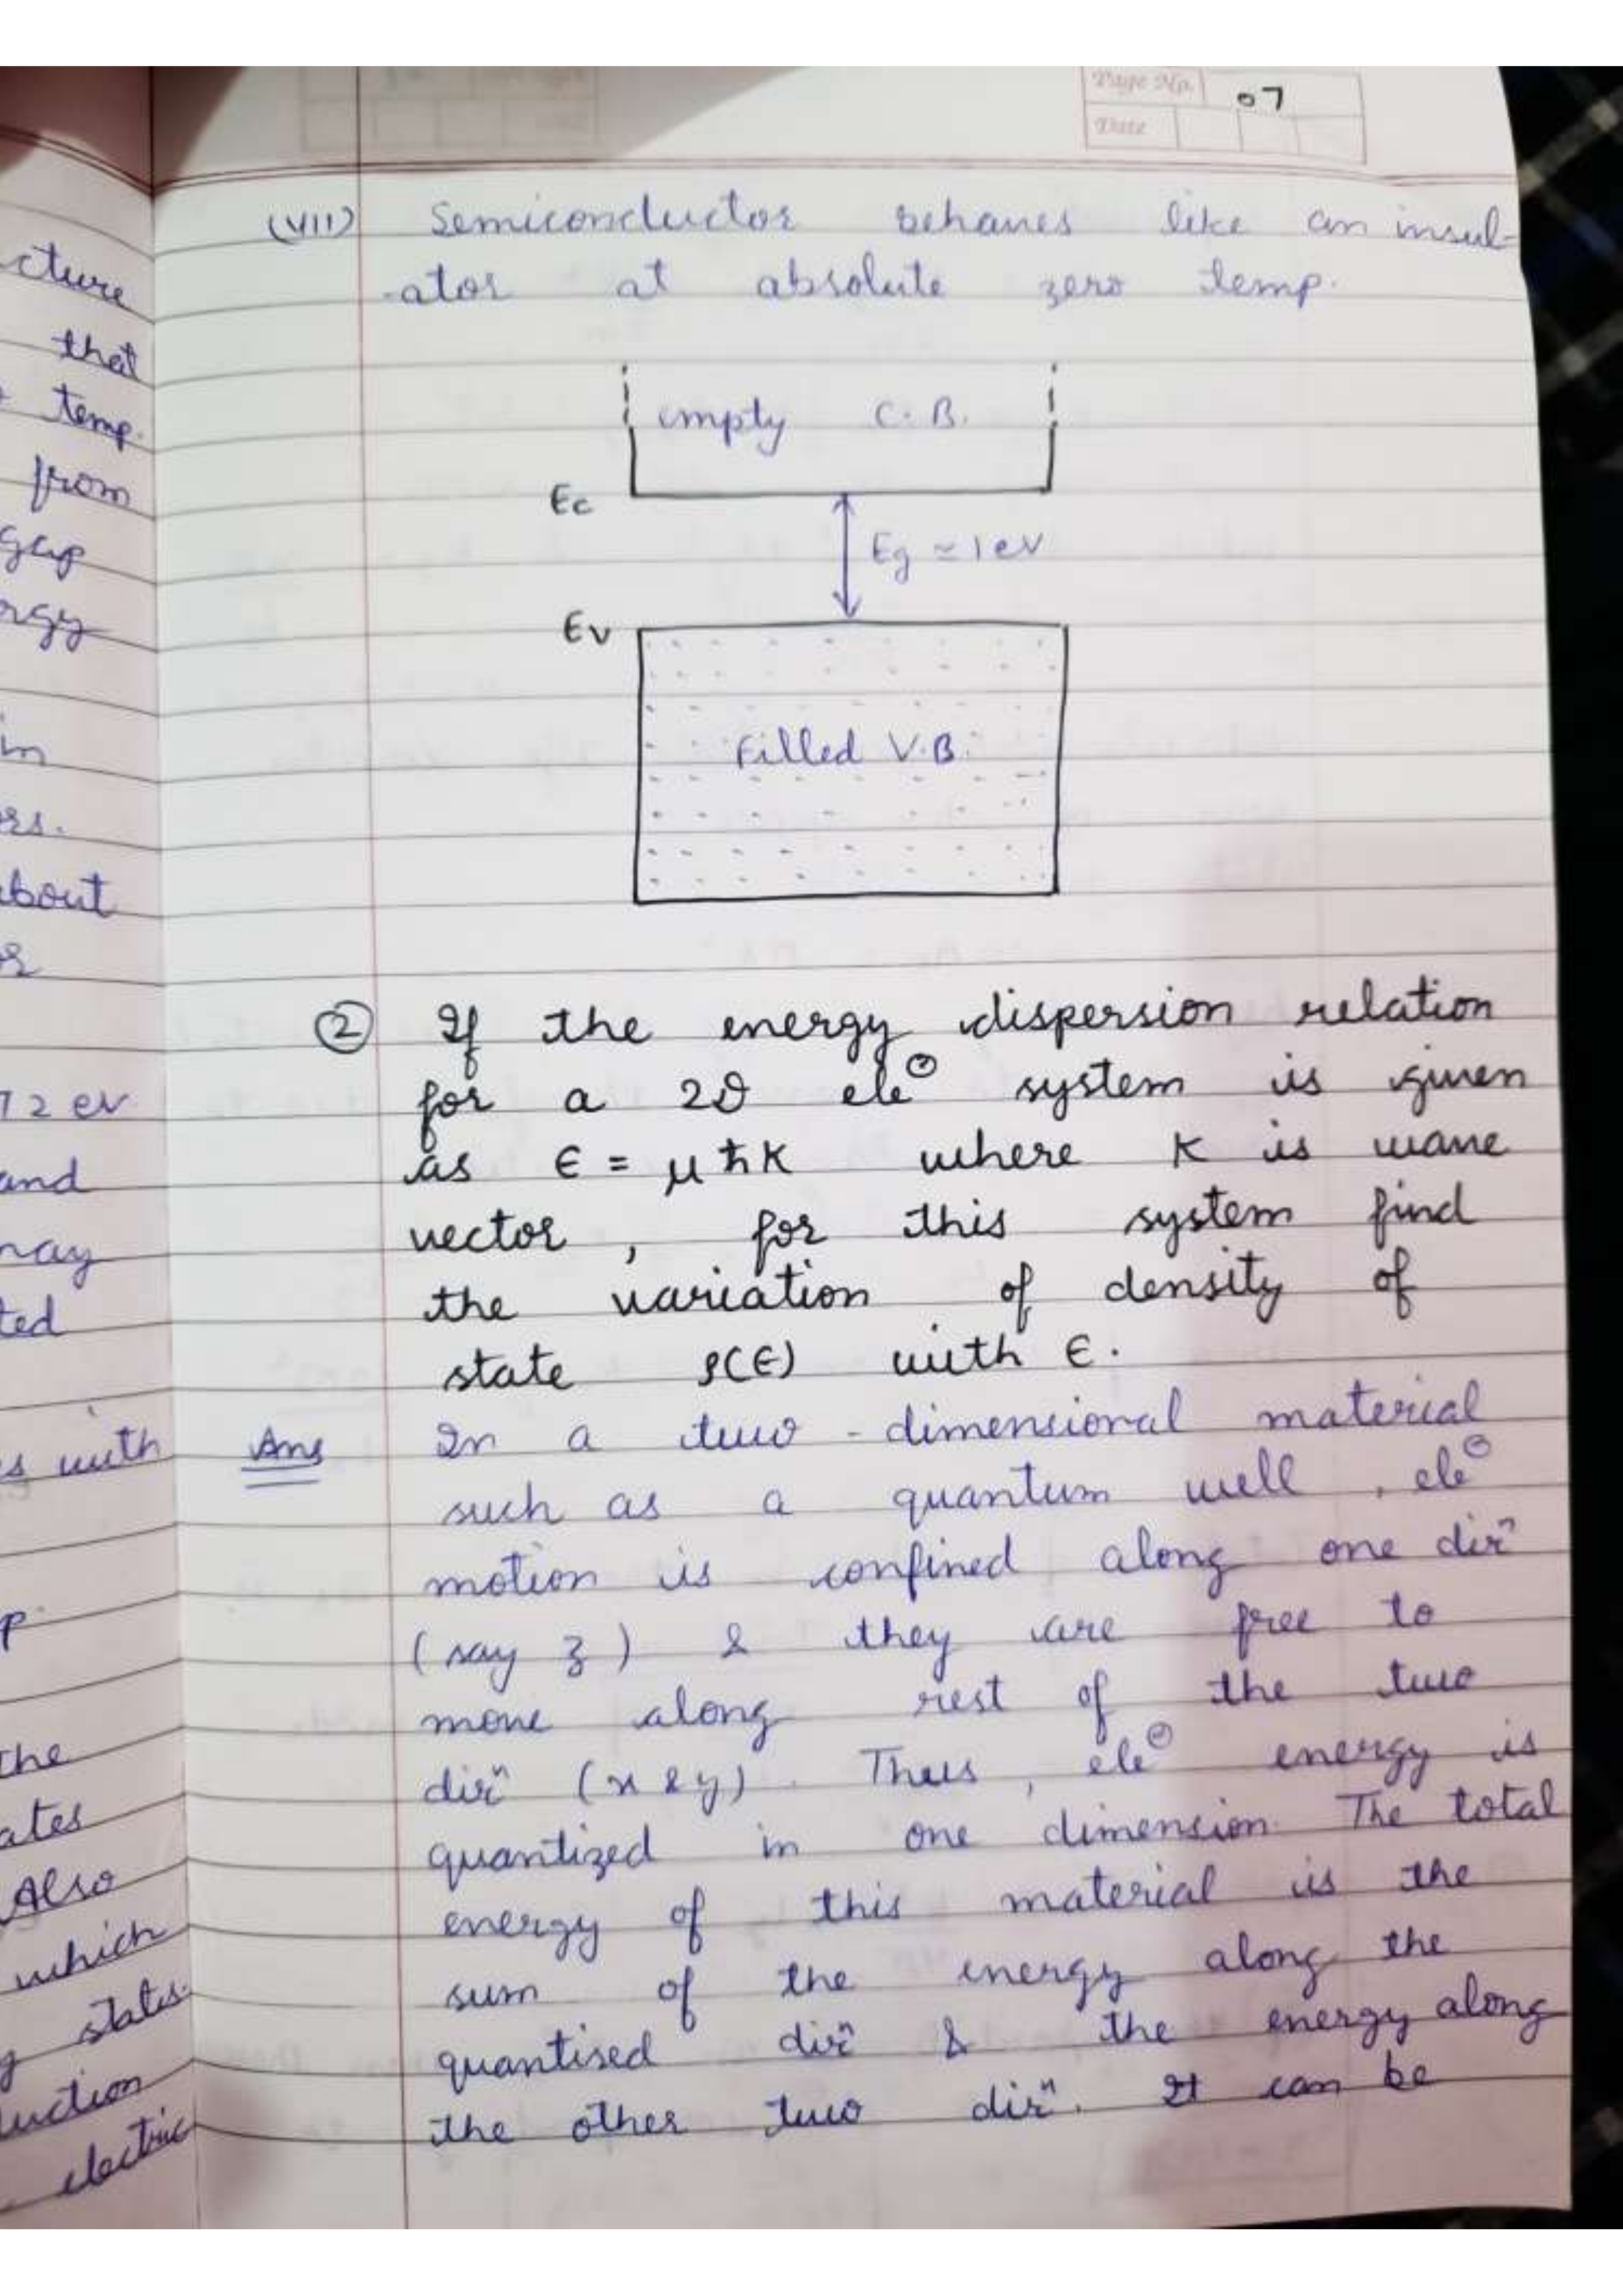 Page No. 07
Date
(VII) Semiconductor behaves like an insul-
-ator at absolute zero temp.
empty C.B.
Ec
Eg ≃ 1 eV
Ev
Filled V.B.
② If the energy dispersion relation
for a 2D ele⊖ system is given
as ϵ = μℏK where K is wave
vector, for this system find
the variation of density of
state ρ(ϵ) with ϵ.
Ans In a two-dimensional material
such as a quantum well, ele⊖
motion is confined along one dirⁿ
(say z) & they are free to
move along rest of the two
dirⁿ (x & y). Thus, ele⊖ energy is
quantized in one dimension. The total
energy of this material is the
sum of the energy along the
quantised dirⁿ & the energy along
the other two dirⁿ. It can be
cture
that
temp.
from
gap
rgy
in
ers.
about
72 ev
and
may
ted
s with
p.
the
ates
Also
which
states.
uction
electric